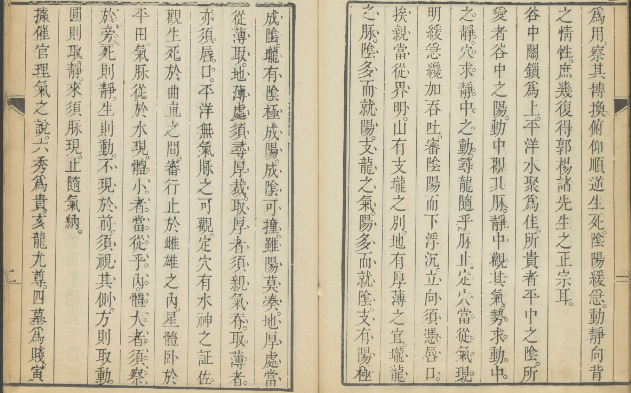 為用察其轉換俯仰順逆生死陰陽緩急動靜向背
之情性庶幾復得郭楊諸先生之正宗耳
谷中關鎖為上平洋水聚為佳所貴者平中之陰所
愛者谷中之陽動中觀其脉靜中觀其氣勢求動中
之靜穴求靜中之動尋龍隨乎脉止定穴當從氣現
明緩急纔加吞吐審陰陽而下浮沉立向須憑唇口
挨親當從界明山有支壠之別地有厚薄之宜壠龍
之脉陰多而就陽支龍之氣陽多而就陰支有陽極
成陰壠有陰極成陽成陰可撞雖陽莫湊地厚處當
從薄取地薄處須尋厚裁取厚者須親氣脊取薄者
亦須唇口平洋無氣脉之可觀定穴有水神之証佐
觀生死於曲直之間審行止於雌雄之內星體臥於
平田氣脉從於水現體小者當從乎內體大者須察
於旁死則靜生則動不現於前須視其側方則取動
圓則取靜來須脉現止隨氣納
據催官理氣之說六秀為貴亥龍尤尊四墓為賤寅